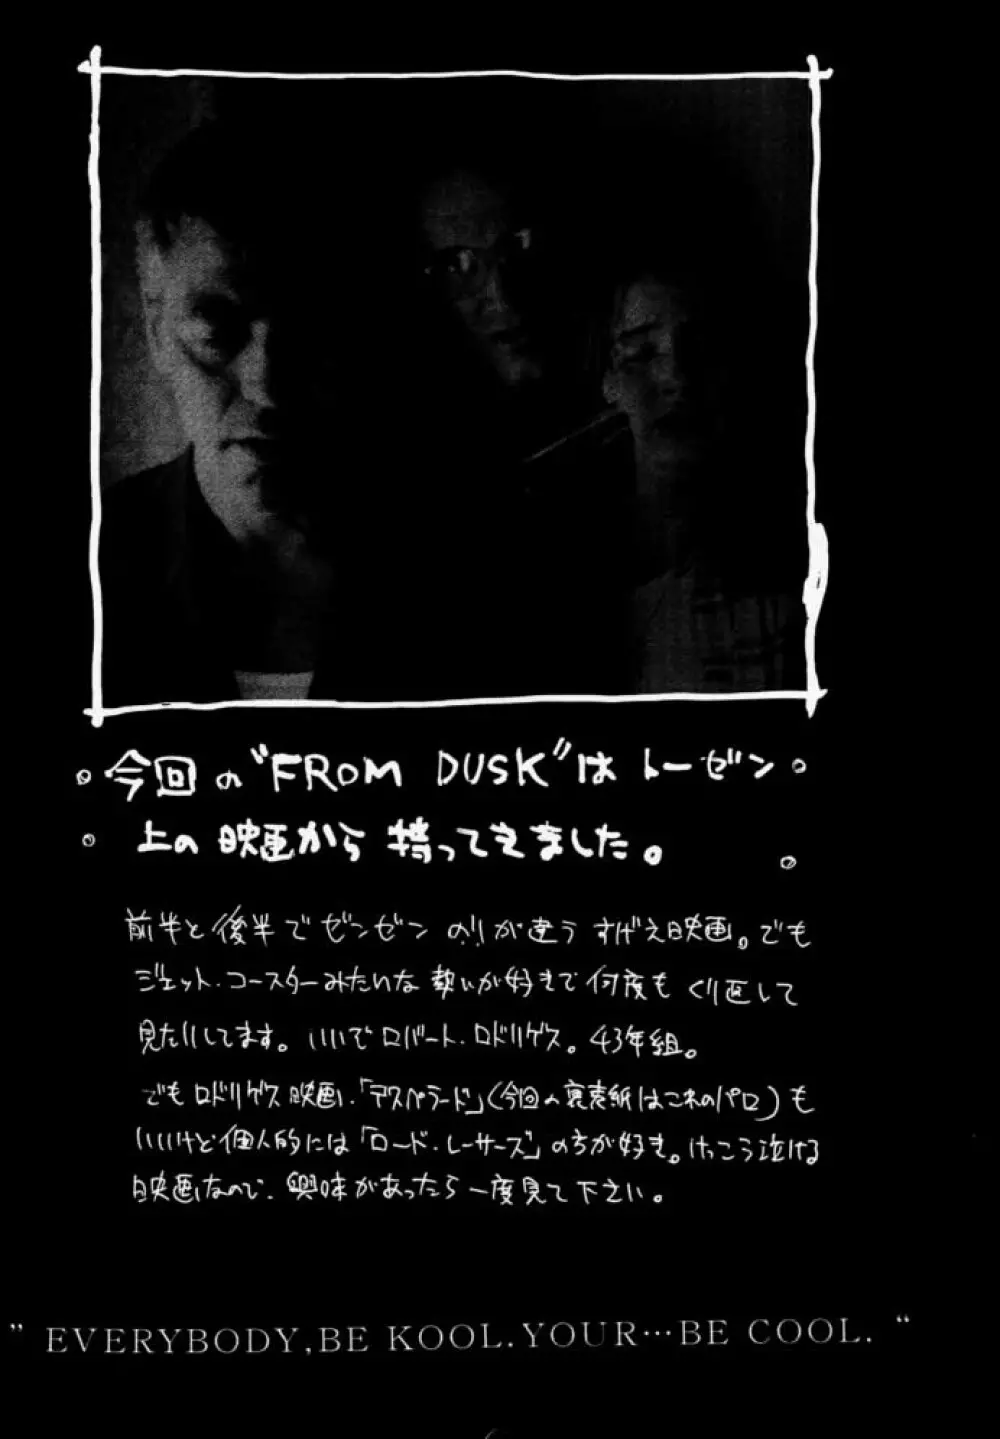 今回の"FROM DUSK"は トーゼン
上の映画から持ってきました。
前半と後半でゼンゼン のりが違う すげえ映画。でも
ジェット・コースターみたいな 勢いが好きで何度も くり返して
見たりしてます。いいぞロバート・ロドリゲス。43年組。
でもロドリゲス映画、「デスペラード」(今回の裏表紙はこれのパロ)も
いいけど個人的には「ロード・レーサーズ」の方が好き。けっこう泣ける
映画なので、興味があったら一度見て下さい。
" EVERYBODY,BE KOOL.YOUR…BE COOL. "